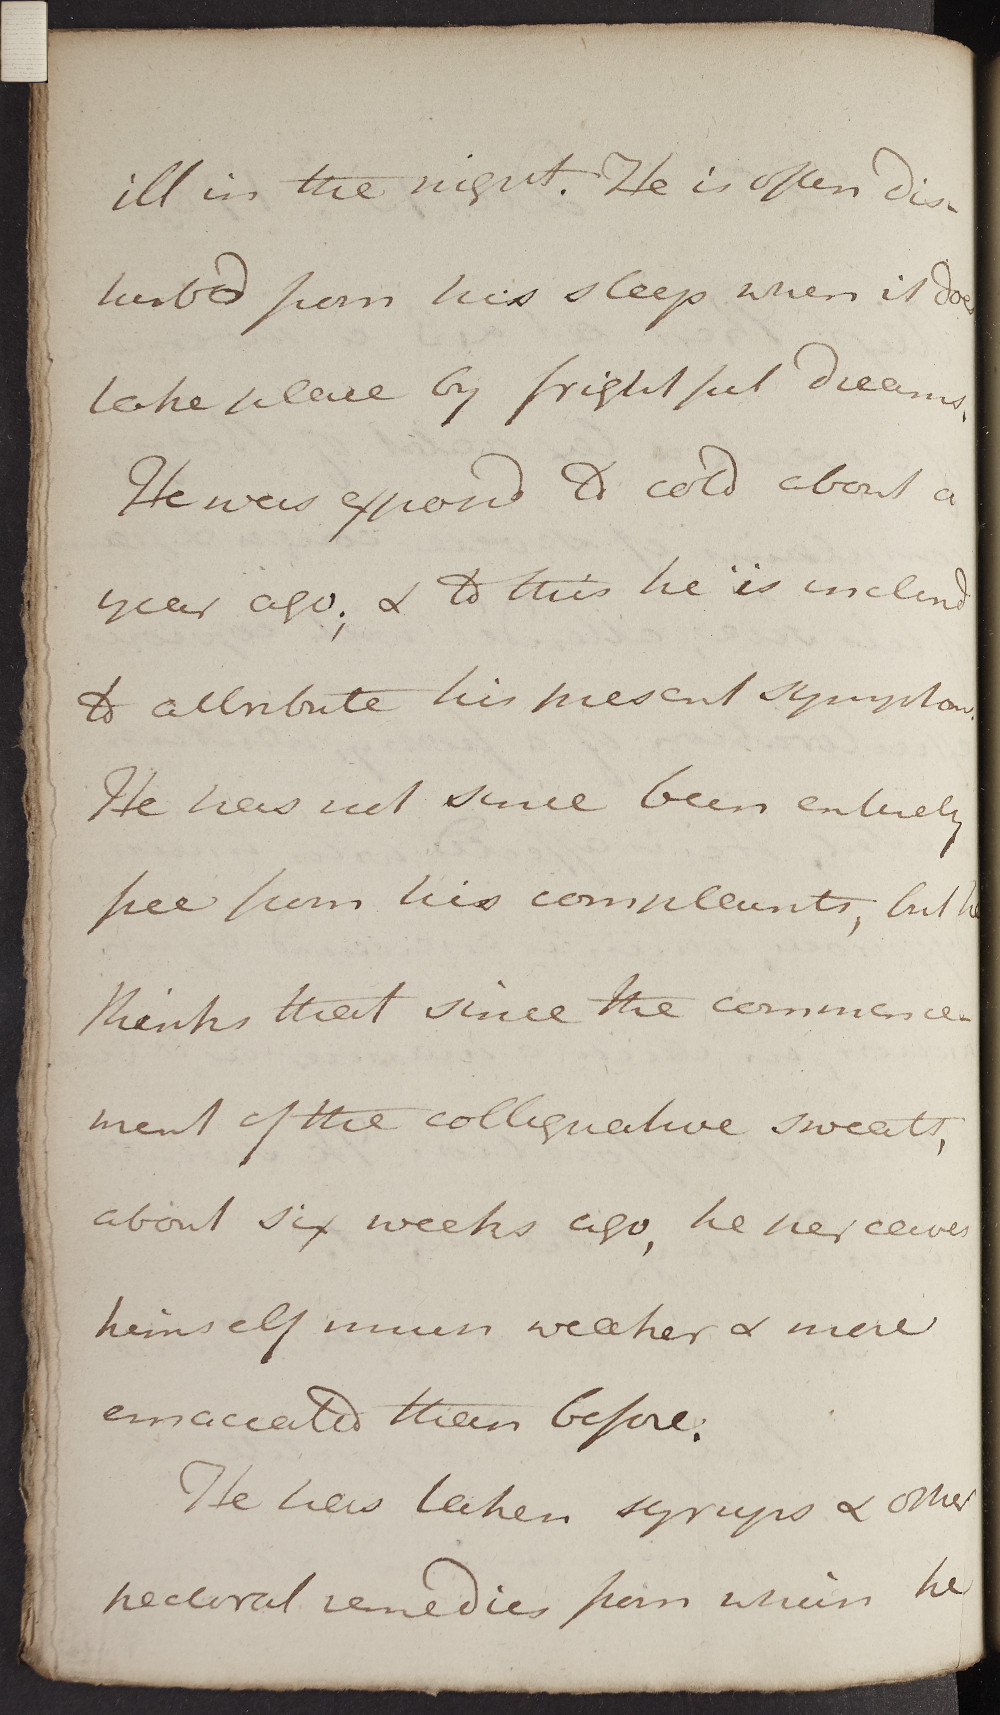 ill in the night. He is often dis-
turbed from his sleep when it does
take place by frightful dreams.
He was exposed to cold about a
year ago; & to this he is inclind
to attribute his present symptoms.
He has not since been entirely
free from his complaints, but he
thinks that since the commence-
ment of the colliquative sweats,
about six weeks ago, he perceives
himself much weaker & more
emaciated than before.
He has taken syrups & other
pectoral remedies from which he